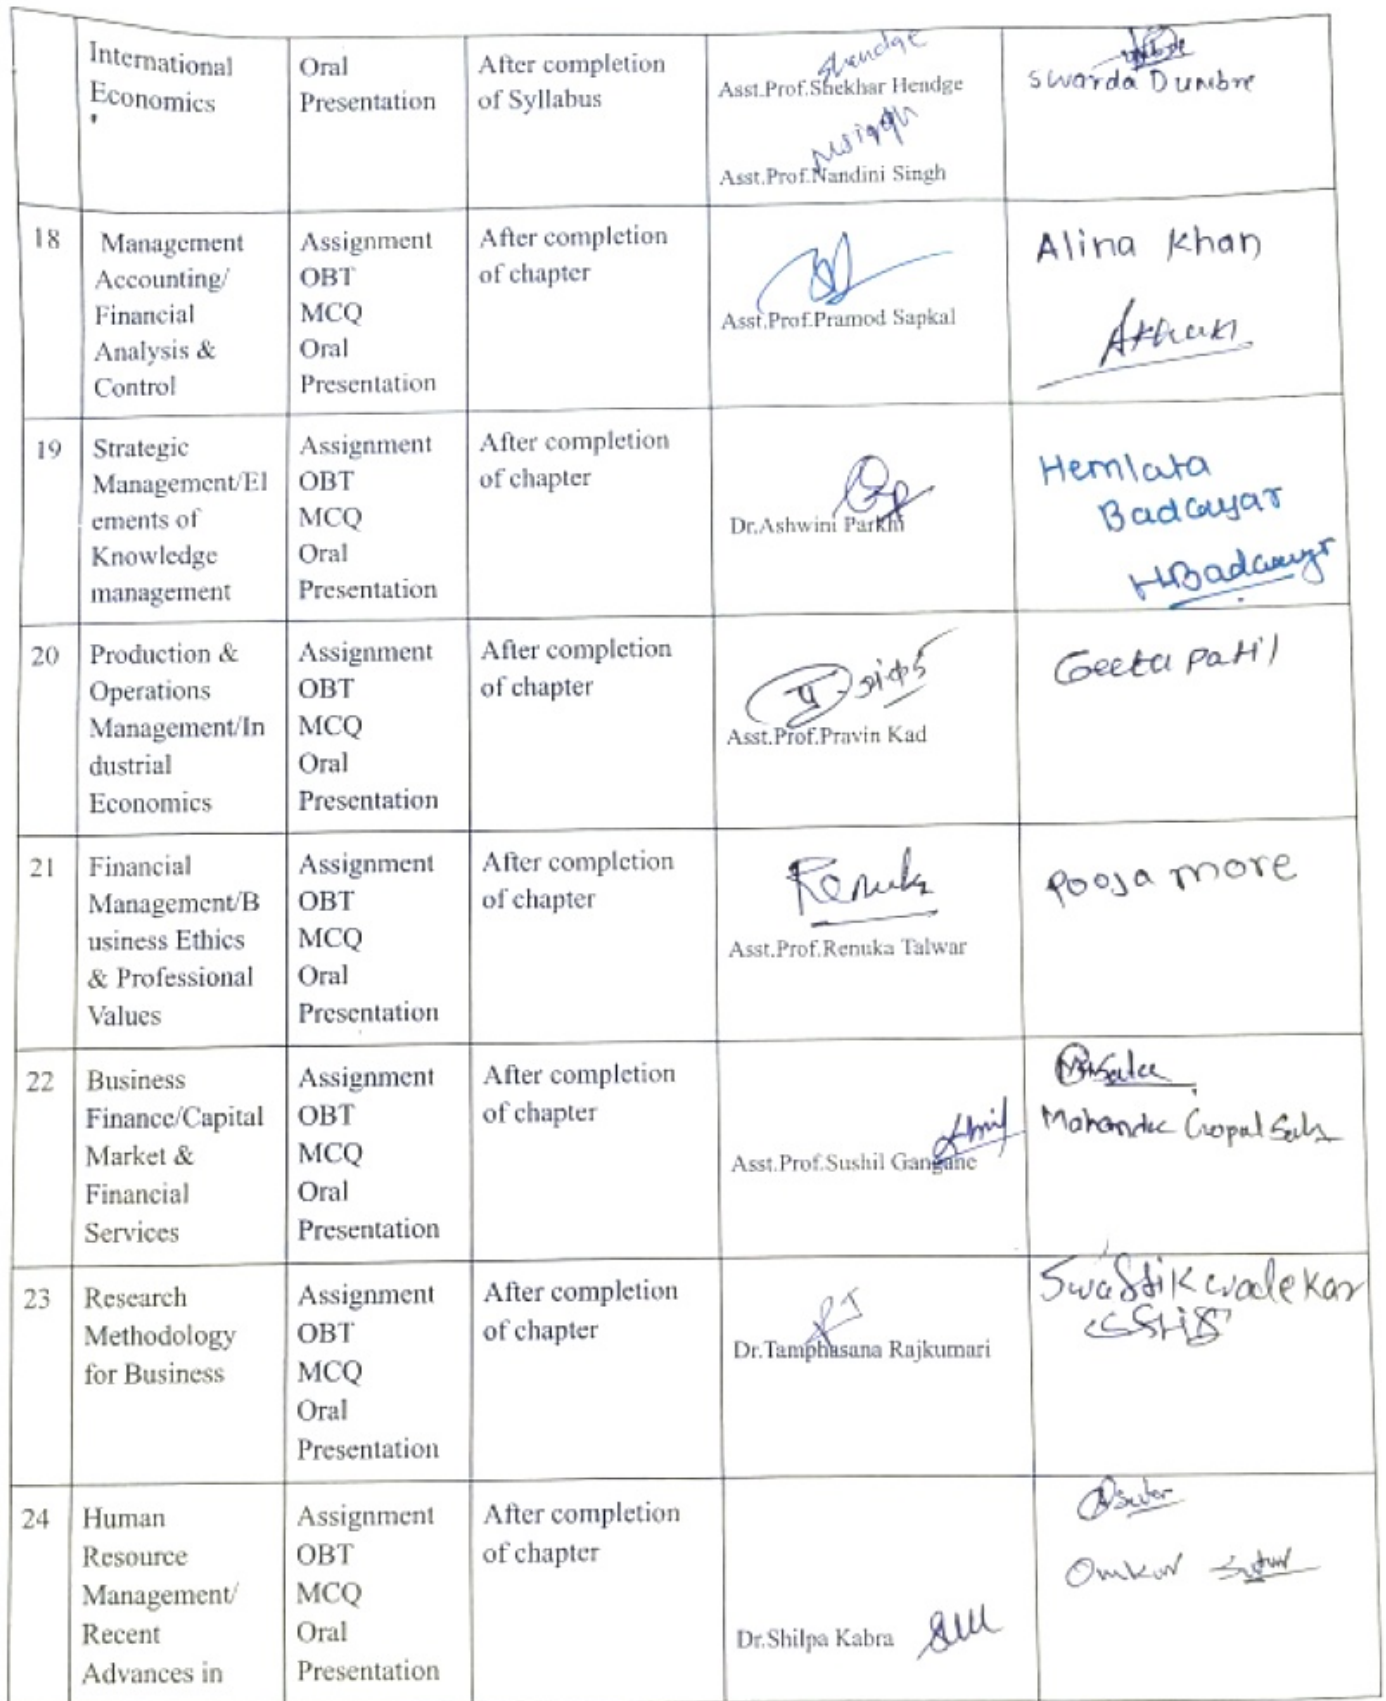 International
Economics
Oral
Presentation
After completion
of Syllabus
Shendge
Asst.Prof.Shekhar Hendge
Asst.Prof.Nandini Singh
Swarda Dumbre
18
Management
Accounting/
Financial
Analysis &
Control
Assignment
OBT
MCQ
Oral
Presentation
After completion
of chapter
Asst.Prof.Pramod Sapkal
Alina Khan
19
Strategic
Management/El
ements of
Knowledge
management
Assignment
OBT
MCQ
Oral
Presentation
After completion
of chapter
Dr.Ashwini Parkhi
Hemlata
20
Production &
Operations
Management/In
dustrial
Economics
Assignment
OBT
MCQ
Oral
Presentation
After completion
of chapter
Asst.Prof.Pravin Kad
Geeta Patil
21
Financial
Management/B
usiness Ethics
& Professional
Values
Assignment
OBT
MCQ
Oral
Presentation
After completion
of chapter
Renuka
Asst.Prof.Renuka Talwar
Pooja more
22
Business
Finance/Capital
Market &
Financial
Services
Assignment
OBT
MCQ
Oral
Presentation
After completion
of chapter
Asst.Prof.Sushil Gangane
Gopal
23
Research
Methodology
for Business
Assignment
OBT
MCQ
Oral
Presentation
After completion
of chapter
Dr.Tamphasana Rajkumari
Swastik Wadekar
24
Human
Resource
Management/
Recent
Advances in
Assignment
OBT
MCQ
Oral
Presentation
After completion
of chapter
Dr.Shilpa Kabra
Omkar Sutar